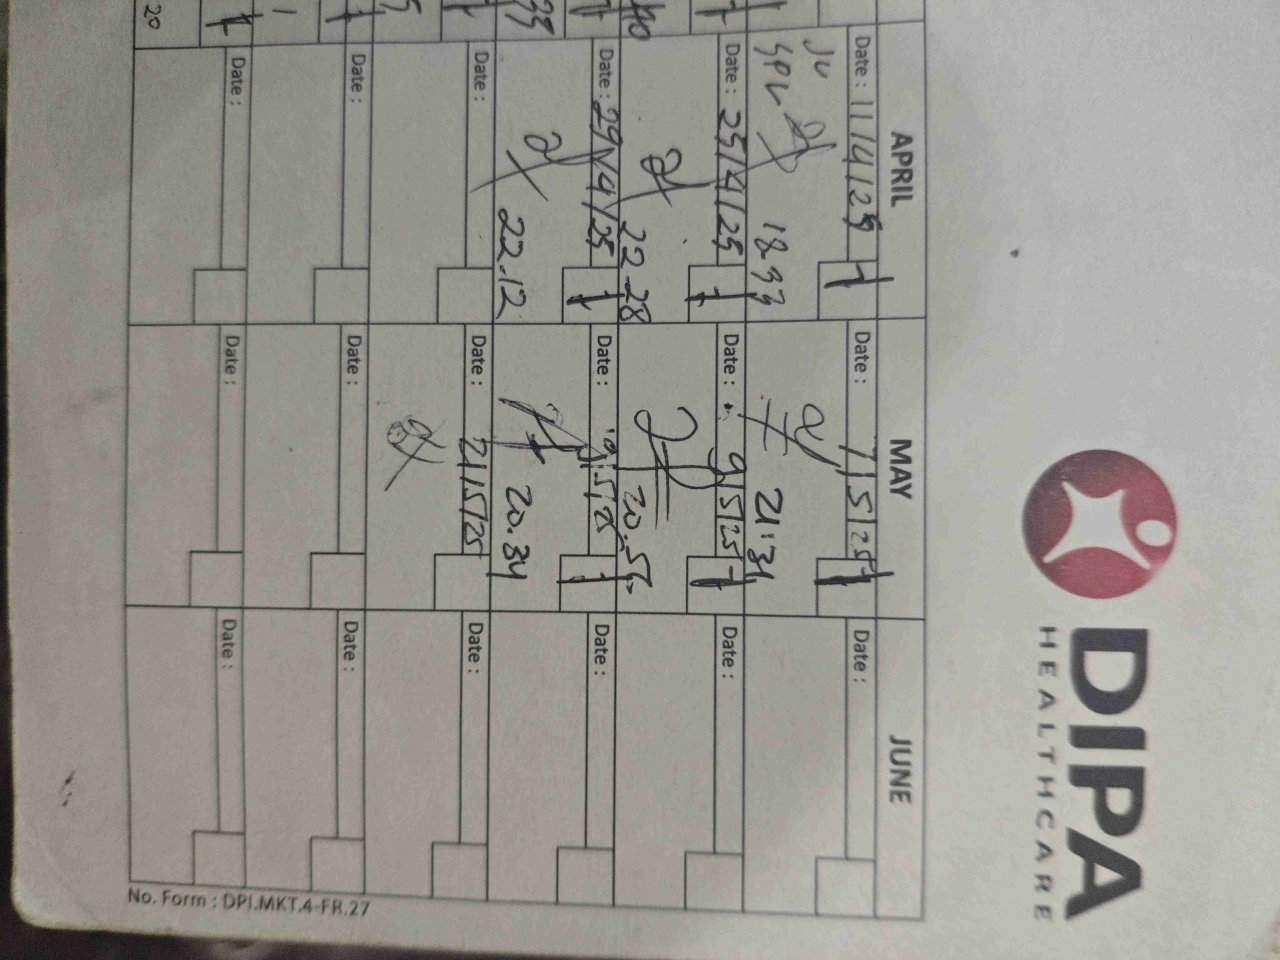 DIPA
HEALTHCARE
APRIL
MAY
JUNE
Date : 11/4/25
Date : 7/5/25
Date :
18 33
21:31
Date : 25/4/25
Date : 9/5/25
Date :
22 28
20.5
Date : 29/4/25
Date : 5/25
Date :
22.12
20.34
Date :
Date : 21/5/25
Date :
Date :
Date :
Date :
Date :
Date :
Date :
20
No. Form : DPI.MKT.4-FR.27